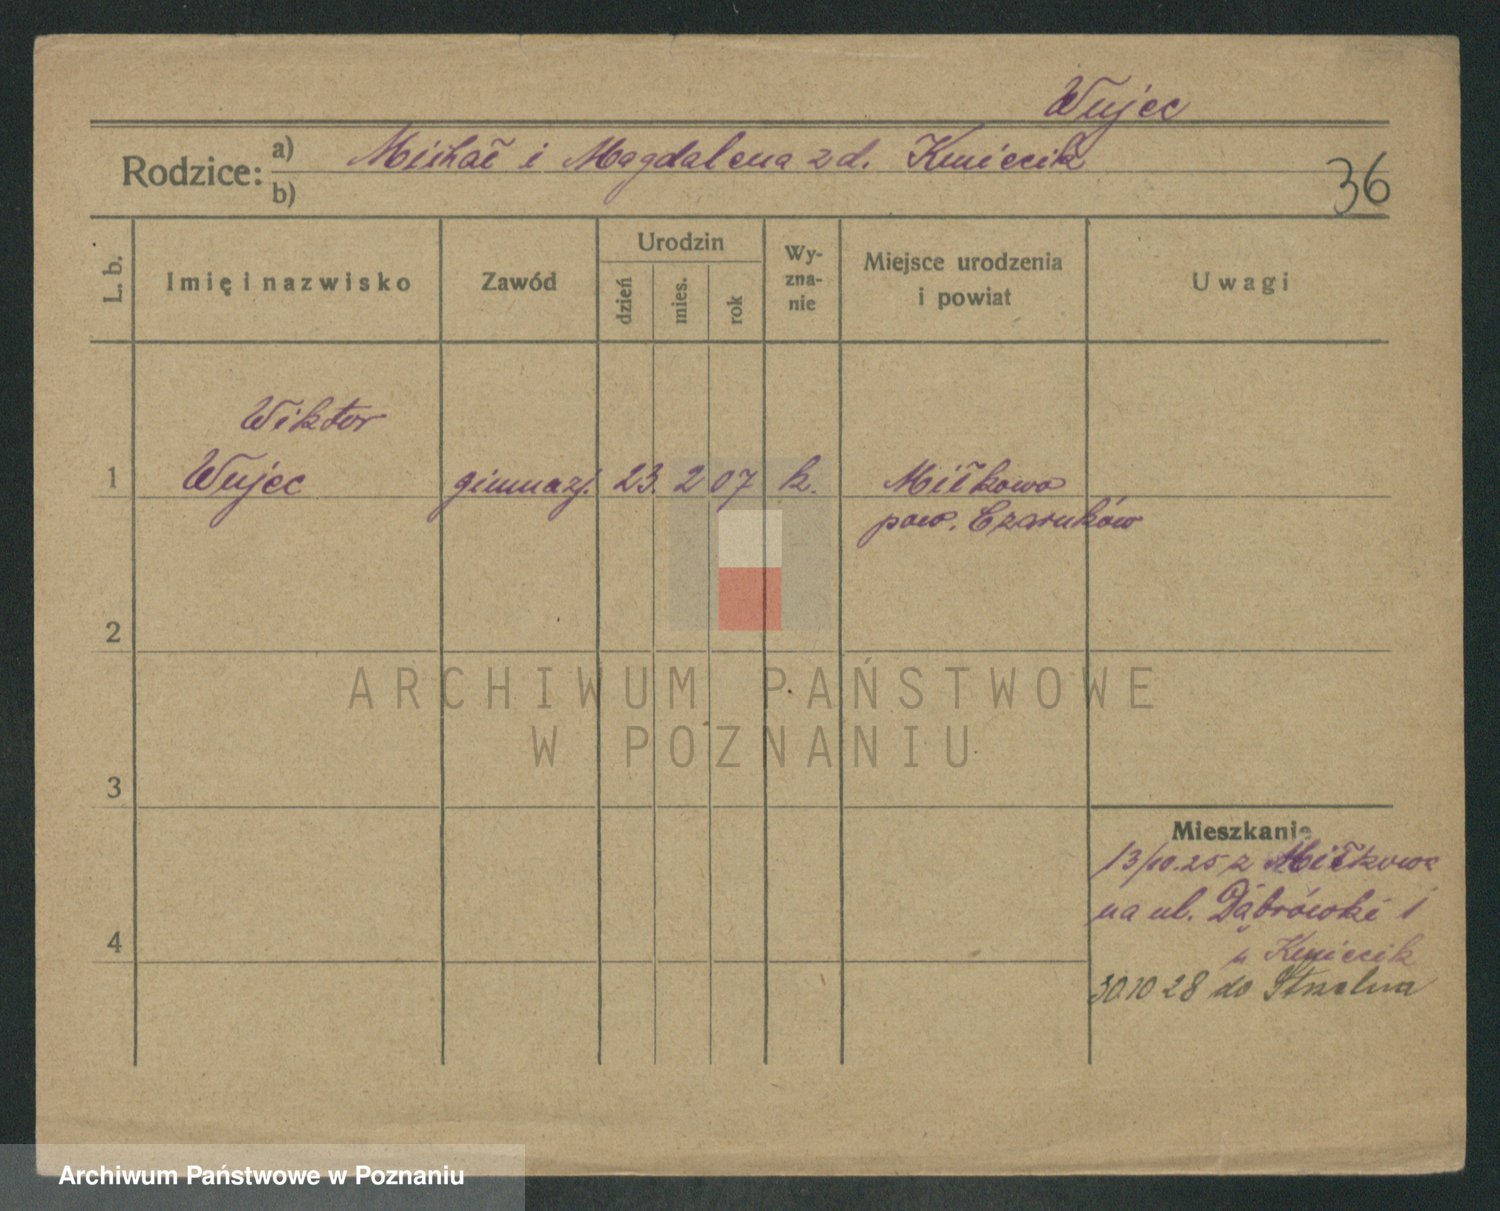 Wujec
Rodzice: a) Michał i Magdalena zd. Kmiecik
b)
36
L. b.
Imię i nazwisko
Zawód
Urodzin
dzień
mies.
rok
Wy-
zna-
nie
Miejsce urodzenia
i powiat
Uwagi
Wiktor
1 Wujec gimnazj. 23. 2 07 k. Miłkowo
pow. Czarnków
2
ARCHIWUM PAŃSTWOWE
W POZNANIU
3
Mieszkanie
13/10.25 z Miłkowa
na ul. Dąbrówki 1
u Kmiecik
4
30.10 28 do Strzelna
Archiwum Państwowe w Poznaniu